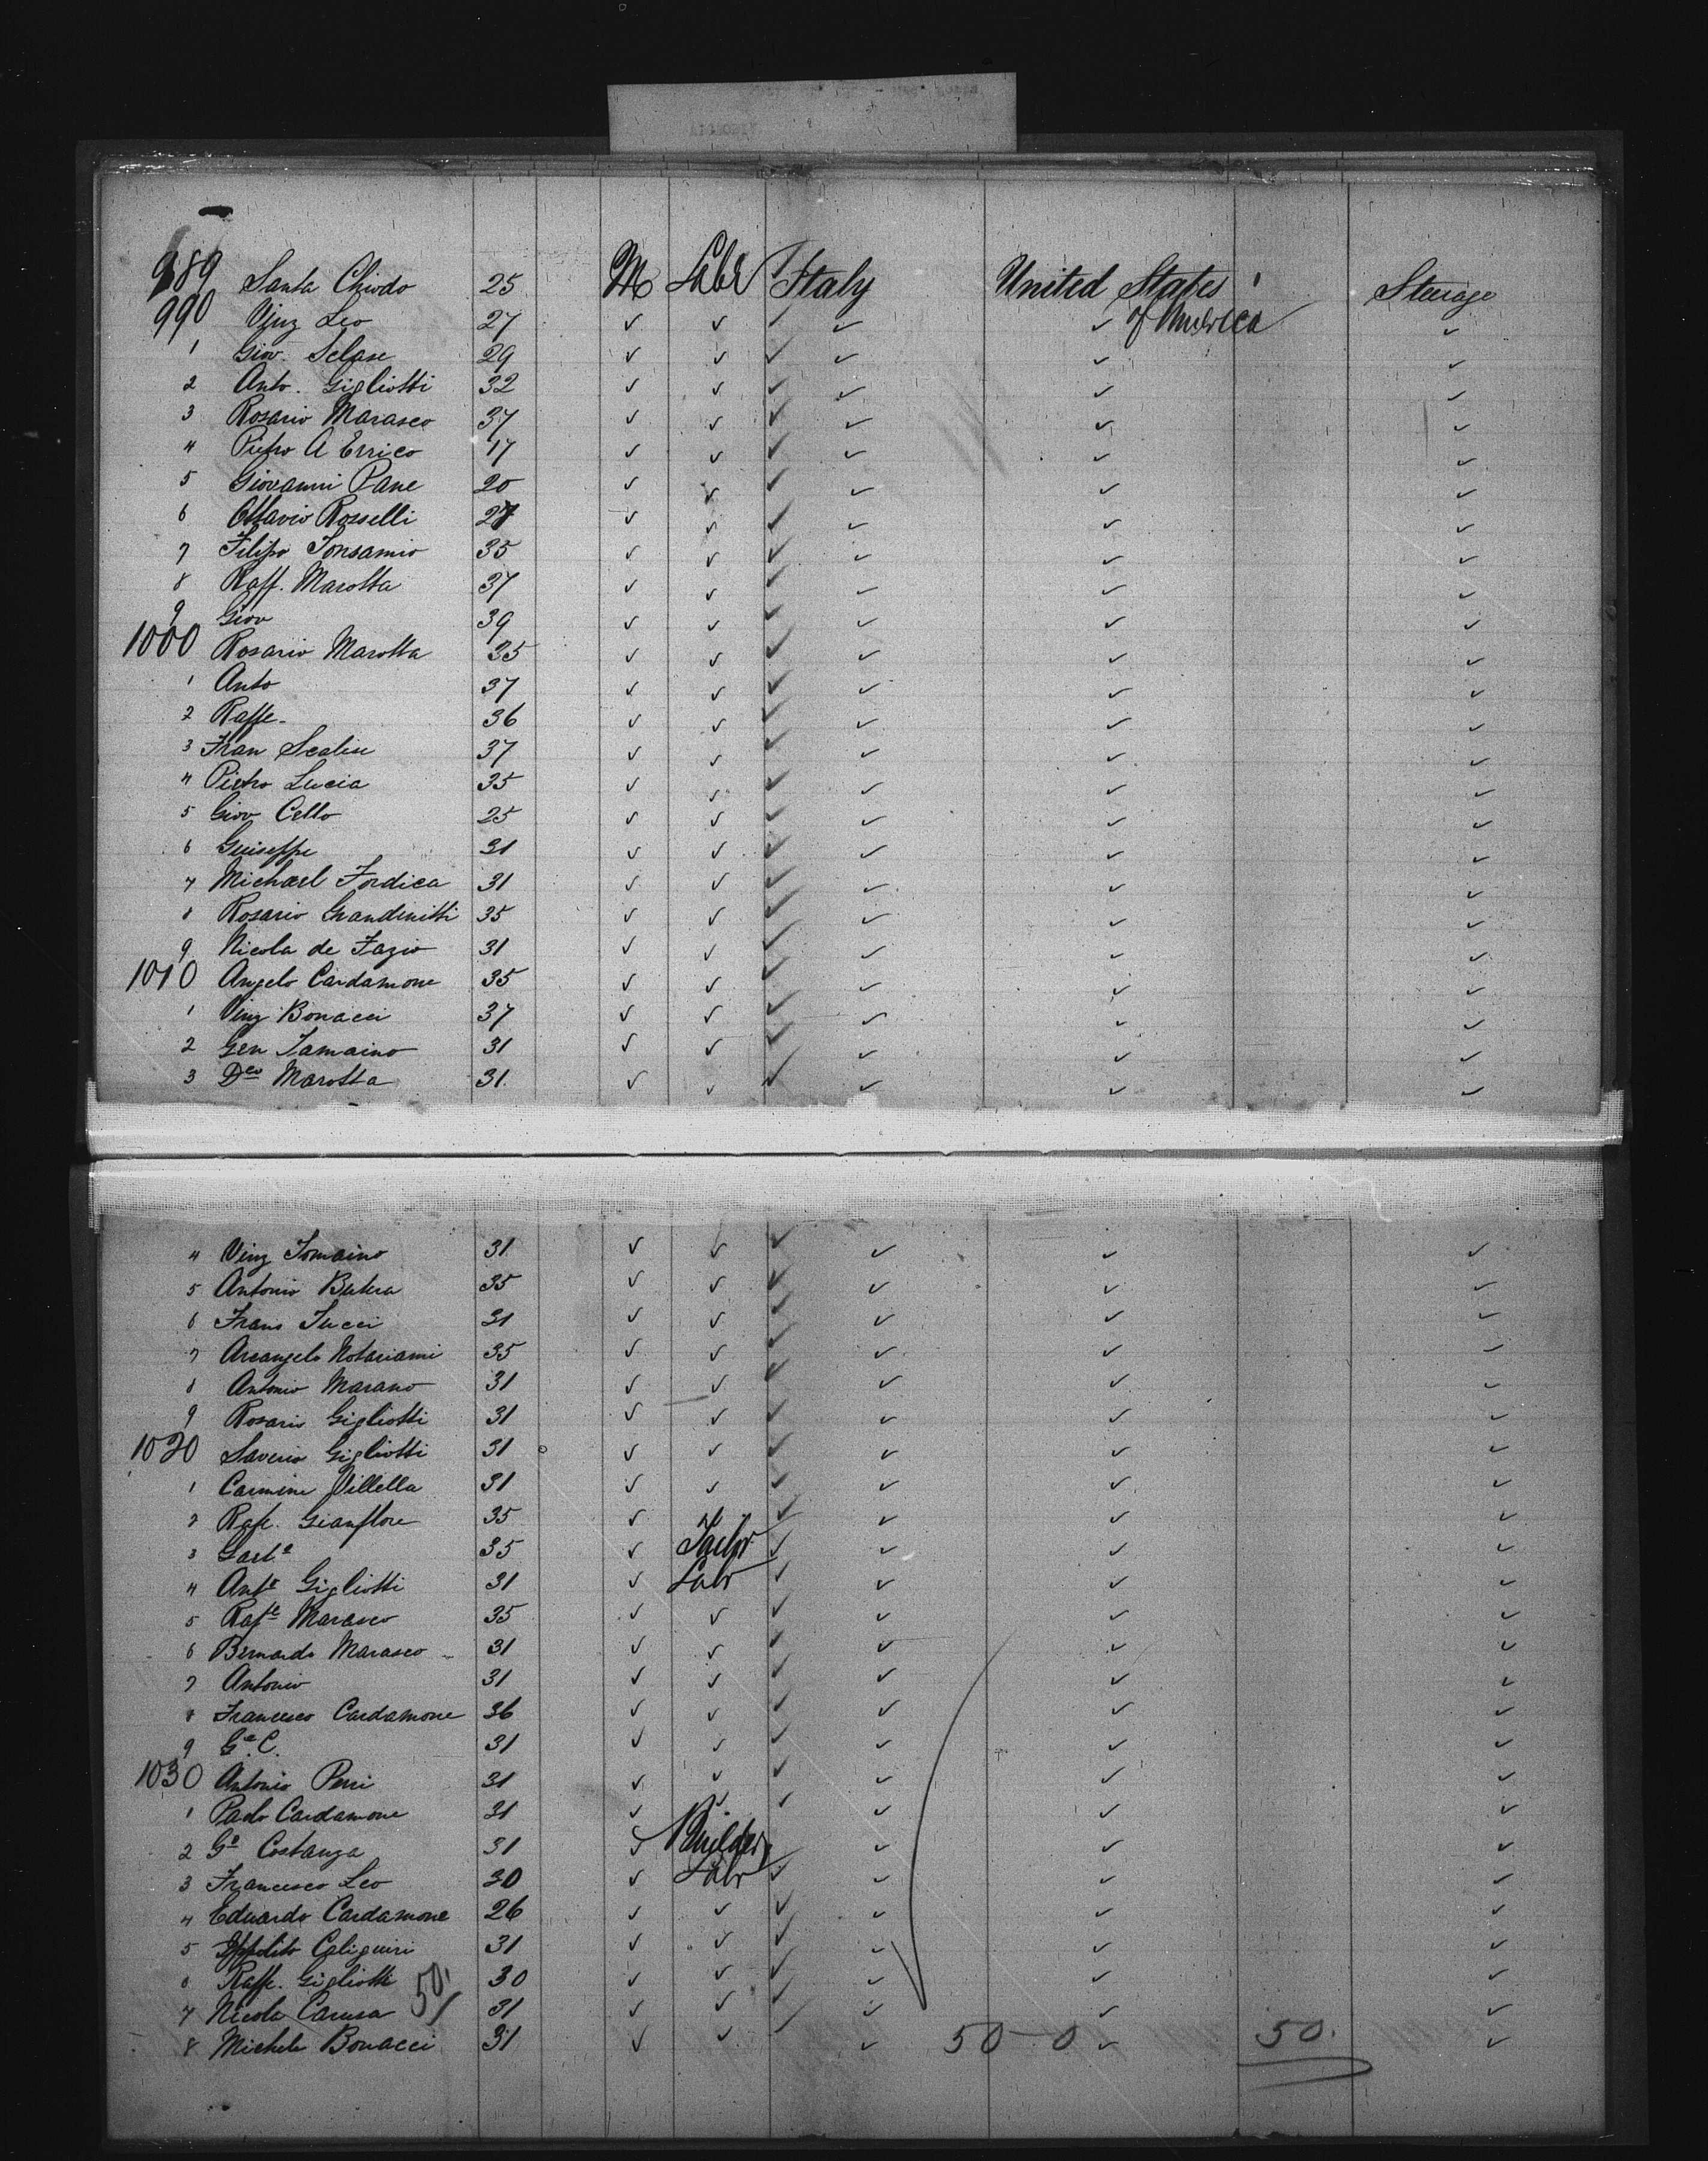 989 Santa Chiodo 25 M Labr Italy United States Steerage
990 Vinz Leo 27 ✓ ✓ ✓ ✓ ✓ of America ✓
1 Giov. Sclase 29 ✓ ✓ ✓ ✓ ✓ ✓
2 Anto. Gigliotti 32 ✓ ✓ ✓ ✓ ✓ ✓
3 Rosario Marasco 37 ✓ ✓ ✓ ✓ ✓ ✓
4 Pietro A Errico 17 ✓ ✓ ✓ ✓ ✓ ✓
5 Giovanni Pane 20 ✓ ✓ ✓ ✓ ✓ ✓
6 Ottavio Rosselli 27 ✓ ✓ ✓ ✓ ✓ ✓
7 Filipo 35 ✓ ✓ ✓ ✓ ✓ ✓
8 Raff. Marotta 37 ✓ ✓ ✓ ✓ ✓ ✓
9 Giov 39 ✓ ✓ ✓ ✓ ✓ ✓
1000 Rosario Marotta 35 ✓ ✓ ✓ ✓ ✓ ✓
1 Anto 37 ✓ ✓ ✓ ✓ ✓ ✓
2 Raffe. 36 ✓ ✓ ✓ ✓ ✓ ✓
3 Fran Scalise 37 ✓ ✓ ✓ ✓ ✓ ✓
4 Pietro Lucia 35 ✓ ✓ ✓ ✓ ✓ ✓
5 Giov Cello 25 ✓ ✓ ✓ ✓ ✓ ✓
6 Guiseppe 31 ✓ ✓ ✓ ✓ ✓ ✓
7 Michael Fordica 31 ✓ ✓ ✓ ✓ ✓ ✓
8 Rosario Grandinitti 35 ✓ ✓ ✓ ✓ ✓ ✓
9 Nicola de Fazio 31 ✓ ✓ ✓ ✓ ✓ ✓
1010 Angelo Cardamone 35 ✓ ✓ ✓ ✓ ✓ ✓
1 Vinz Bonacci 37 ✓ ✓ ✓ ✓ ✓ ✓
2 Gen Tamaino 31 ✓ ✓ ✓ ✓ ✓ ✓
3 Dco Marotta 31. ✓ ✓ ✓ ✓ ✓ ✓
4 Vinz Tomaino 31 ✓ ✓ ✓ ✓ ✓ ✓
5 Antonio Butera 35 ✓ ✓ ✓ ✓ ✓ ✓
6 Frans Tucci 31 ✓ ✓ ✓ ✓ ✓ ✓
7 Arcangelo Notariami 35 ✓ ✓ ✓ ✓ ✓ ✓
8 Antonio Marano 31 ✓ ✓ ✓ ✓ ✓ ✓
9 Rosario Gigliotti 31 ✓ ✓ ✓ ✓ ✓ ✓
1020 Saverio Gigliotti 31 ✓ ✓ ✓ ✓ ✓ ✓
1 Carmine Villella 31 ✓ ✓ ✓ ✓ ✓ ✓
2 Rafe. Gianflore 35 ✓ ✓ ✓ ✓ ✓ ✓
3 35 ✓ Tailor ✓ ✓ ✓ ✓
4 Anto Gigliotti 31 ✓ Labr ✓ ✓ ✓ ✓
5 Rafe Marasco 35 ✓ ✓ ✓ ✓ ✓ ✓
6 Bernardo Marasco 31 ✓ ✓ ✓ ✓ ✓ ✓
7 Antonio 31 ✓ ✓ ✓ ✓ ✓ ✓
8 Francesco Cardamone 36 ✓ ✓ ✓ ✓ ✓ ✓
9 Ge. C. 31 ✓ ✓ ✓ ✓ ✓ ✓
1030 Antonio Perri 31 ✓ ✓ ✓ ✓ ✓ ✓
1 Paolo Cardamone 31 ✓ ✓ ✓ ✓ ✓ ✓
2 Ge Costanza 31 ✓ Builder ✓ ✓ ✓ ✓
3 Francesco Leo 30 ✓ Labr ✓ ✓ ✓ ✓
4 Eduardo Cardamone 26 ✓ ✓ ✓ ✓ ✓ ✓
5 Ippolito Caliguiri 31 ✓ ✓ ✓ ✓ ✓ ✓
6 Raffe. Gigliotti 50 30 ✓ ✓ ✓ ✓ ✓ ✓
7 Nicola Carusa 31 ✓ ✓ ✓ ✓ ✓ ✓
8 Michele Bonacci 31 ✓ ✓ ✓ 50 0 ✓ 50. ✓